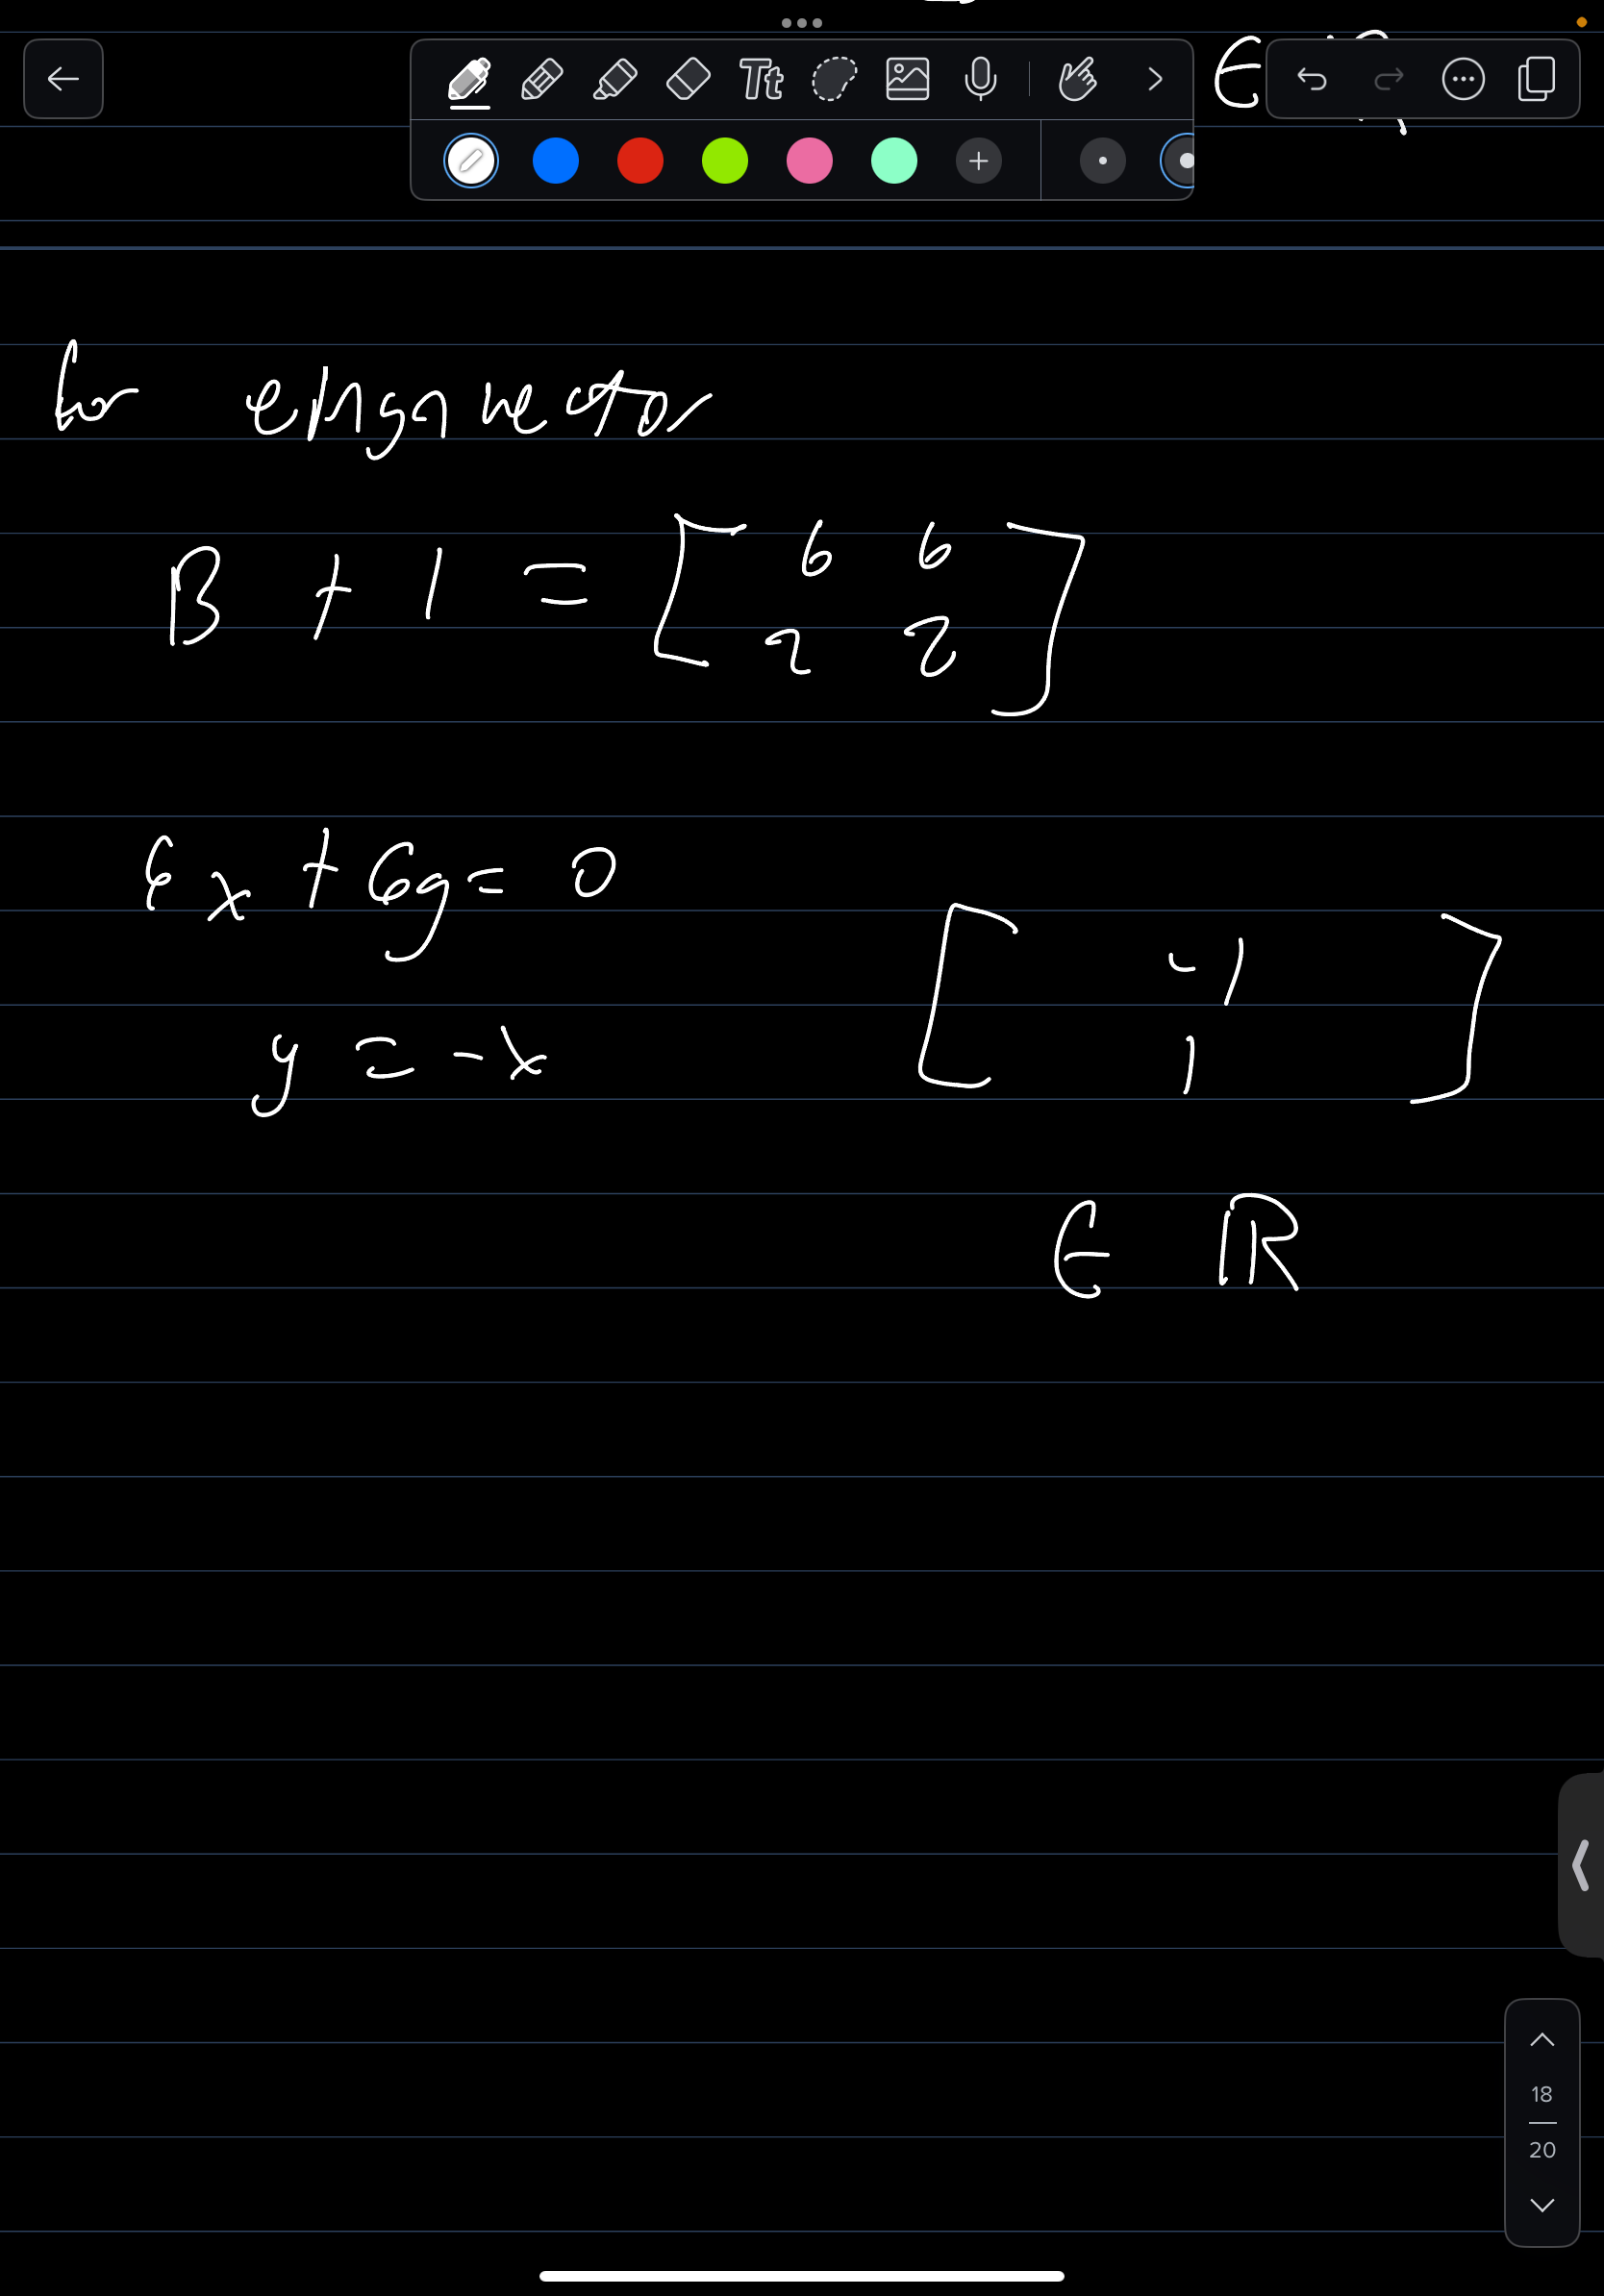 Tt
∈
for eigenvector
B + 1 = [ 6 6
2 2 ]
6x + 6y = 0
y = -x
[ -1
1 ]
∈ ℝ
18
20